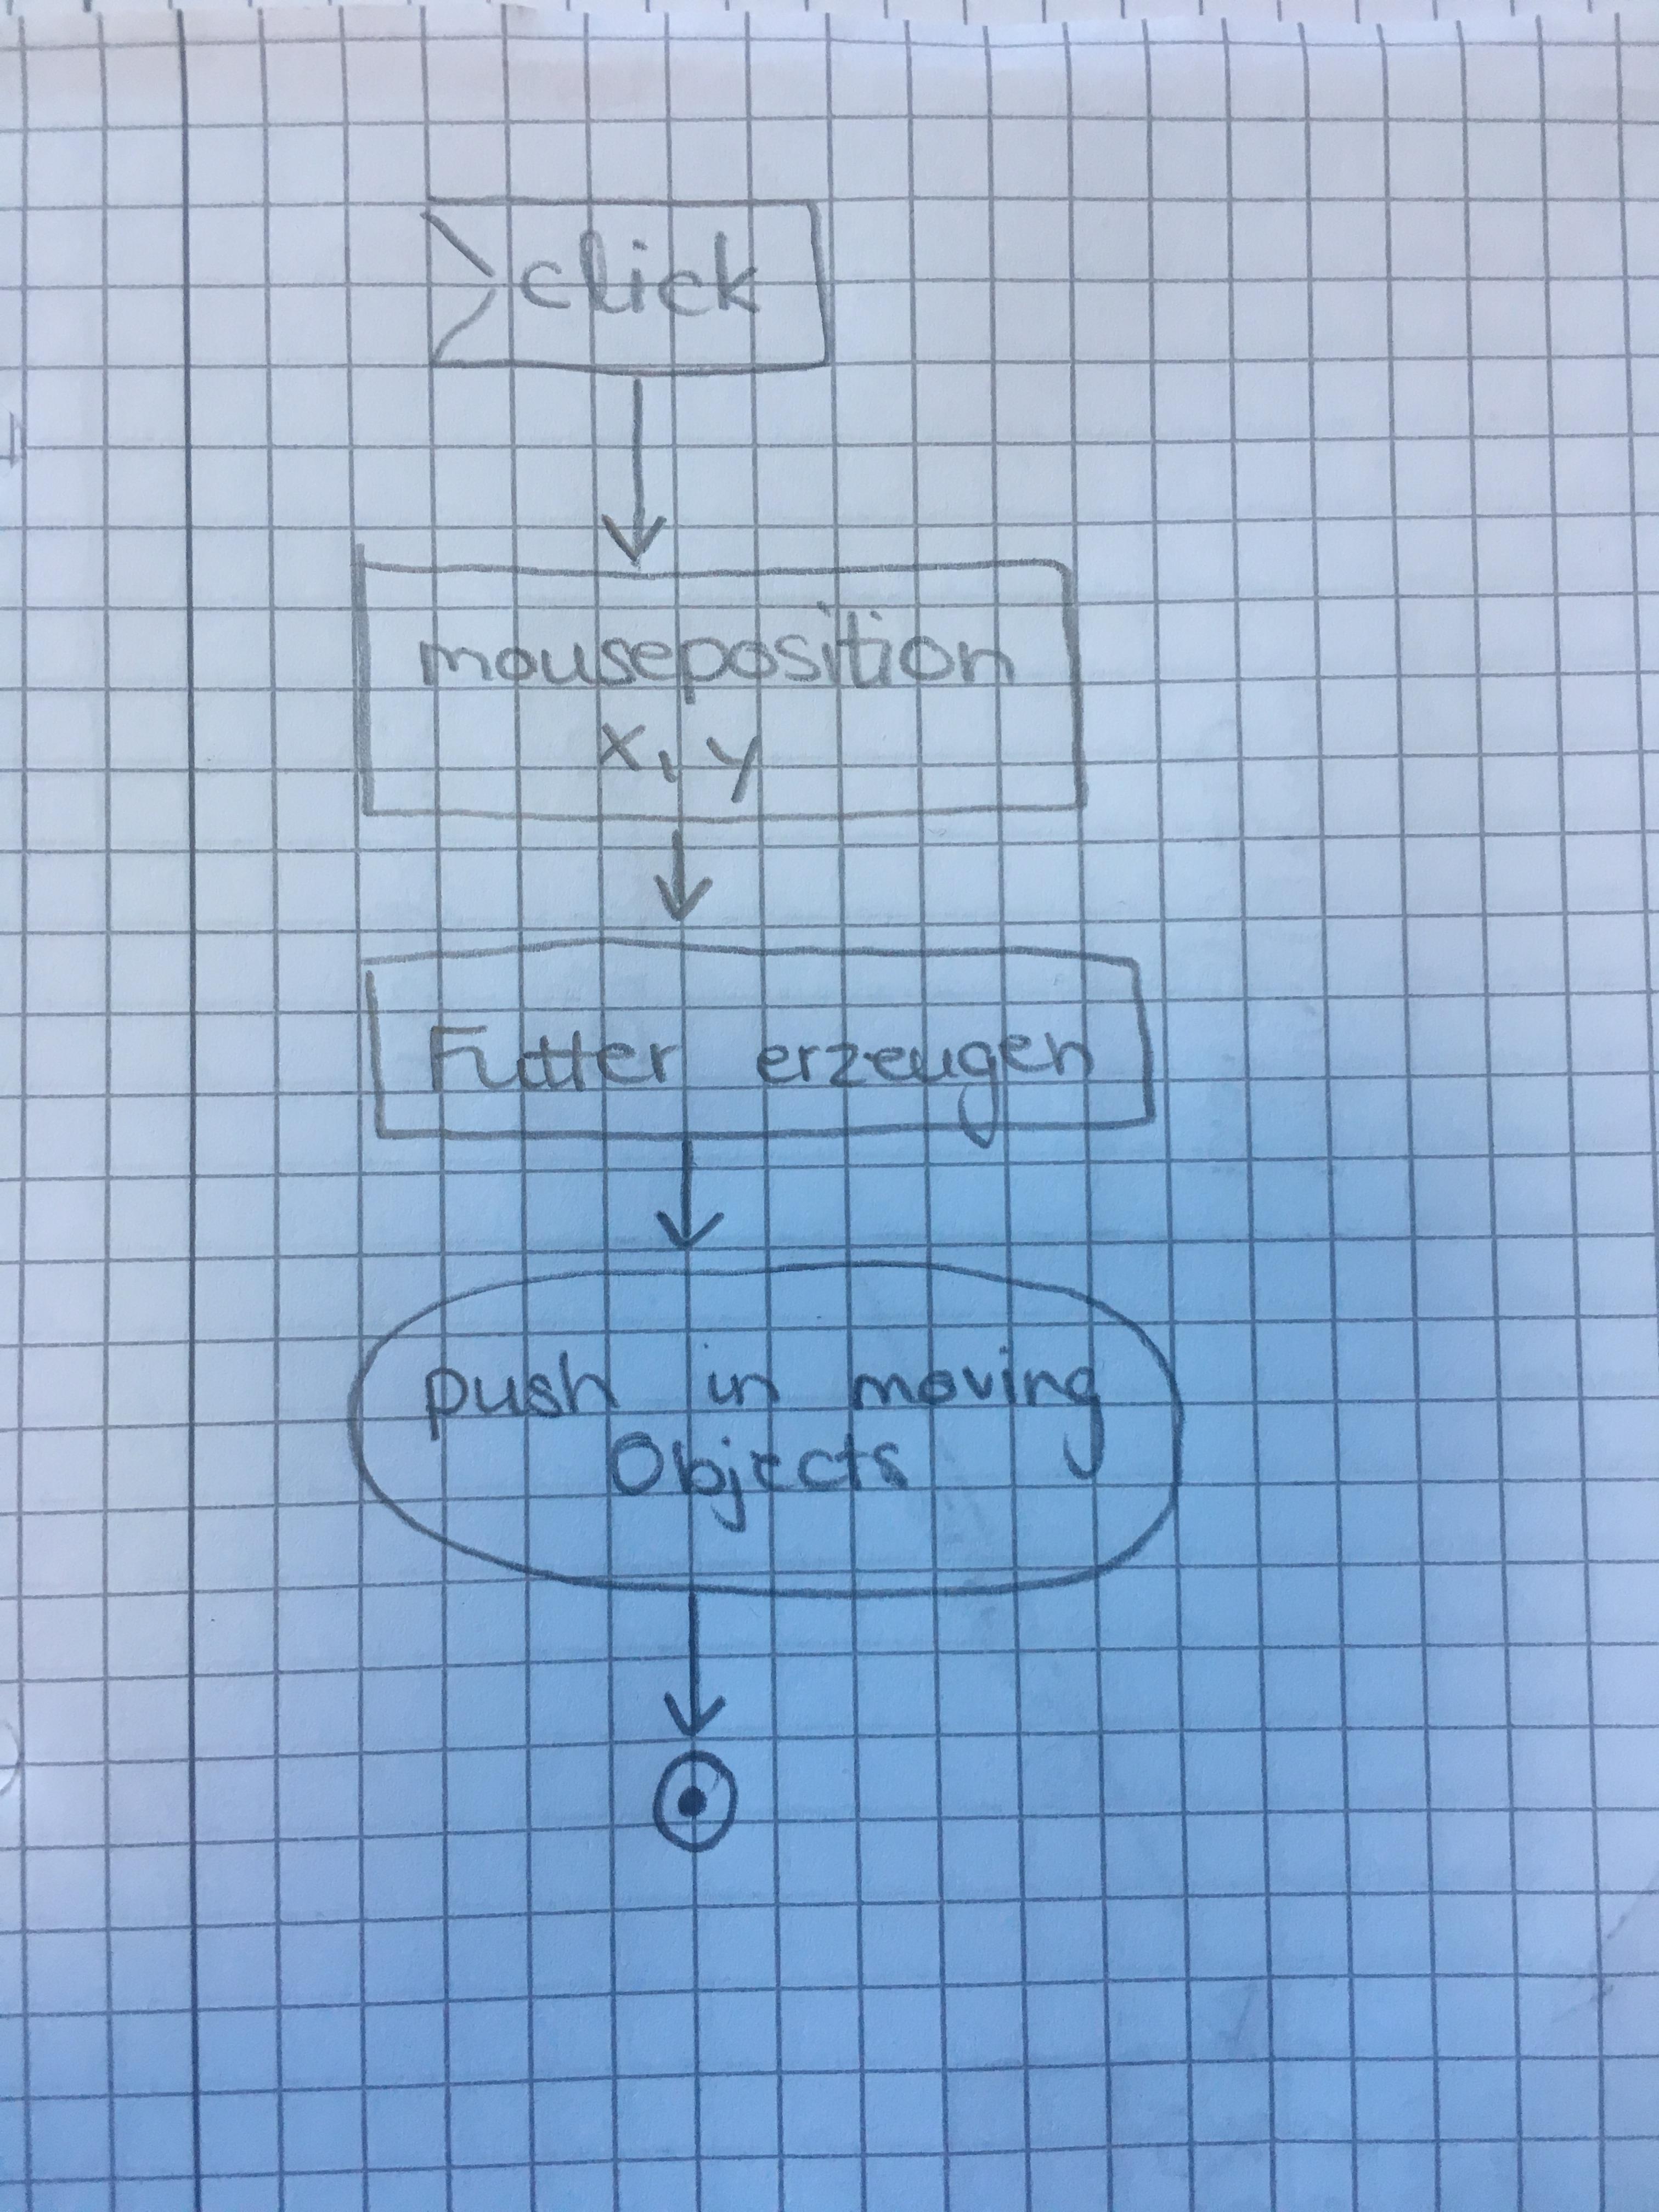 click
mouseposition
x, y
Futter erzeugen
push in moving
Objects